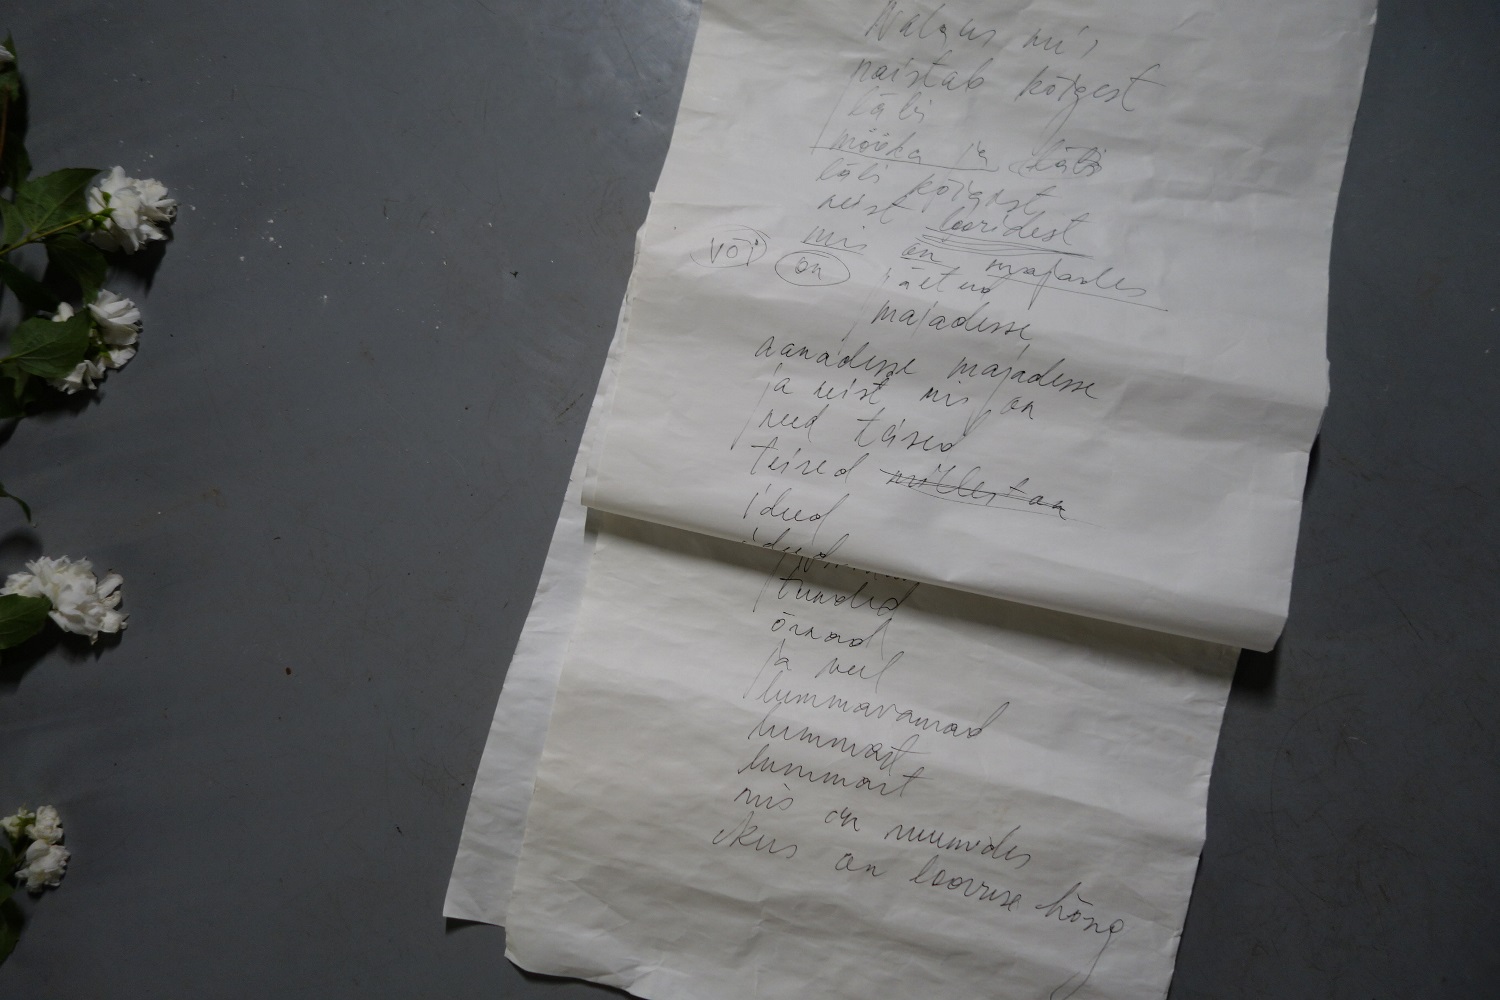 Valgus mis
paistab kõigest
läbi
mööda ja läbi
läbi kõigest
neist looridest
mis on majades
või on jäetud
majadesse
vanadesse majadesse
ja neist mis on
need teised
teised millest on
ideed
tunded
õrnad
ja veel
lummavamad
lummast
lummast
mis on ruumides
kus on loovuse hõng